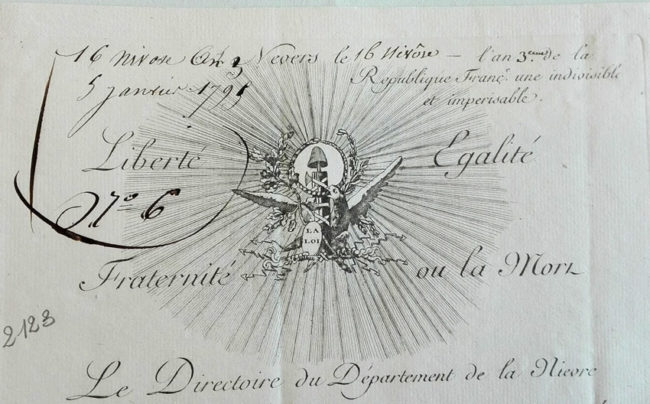 16 nivose An 3 Nevers le 16 Nivôse — l'an 3.eme de la
5 janvier 1795
République Franç.e une indivisible
et impérisable.
Liberté Egalité
N.o 6
LA
LOI
Fraternité ou la Mort
2123
Le Directoire du Département de la Nievre